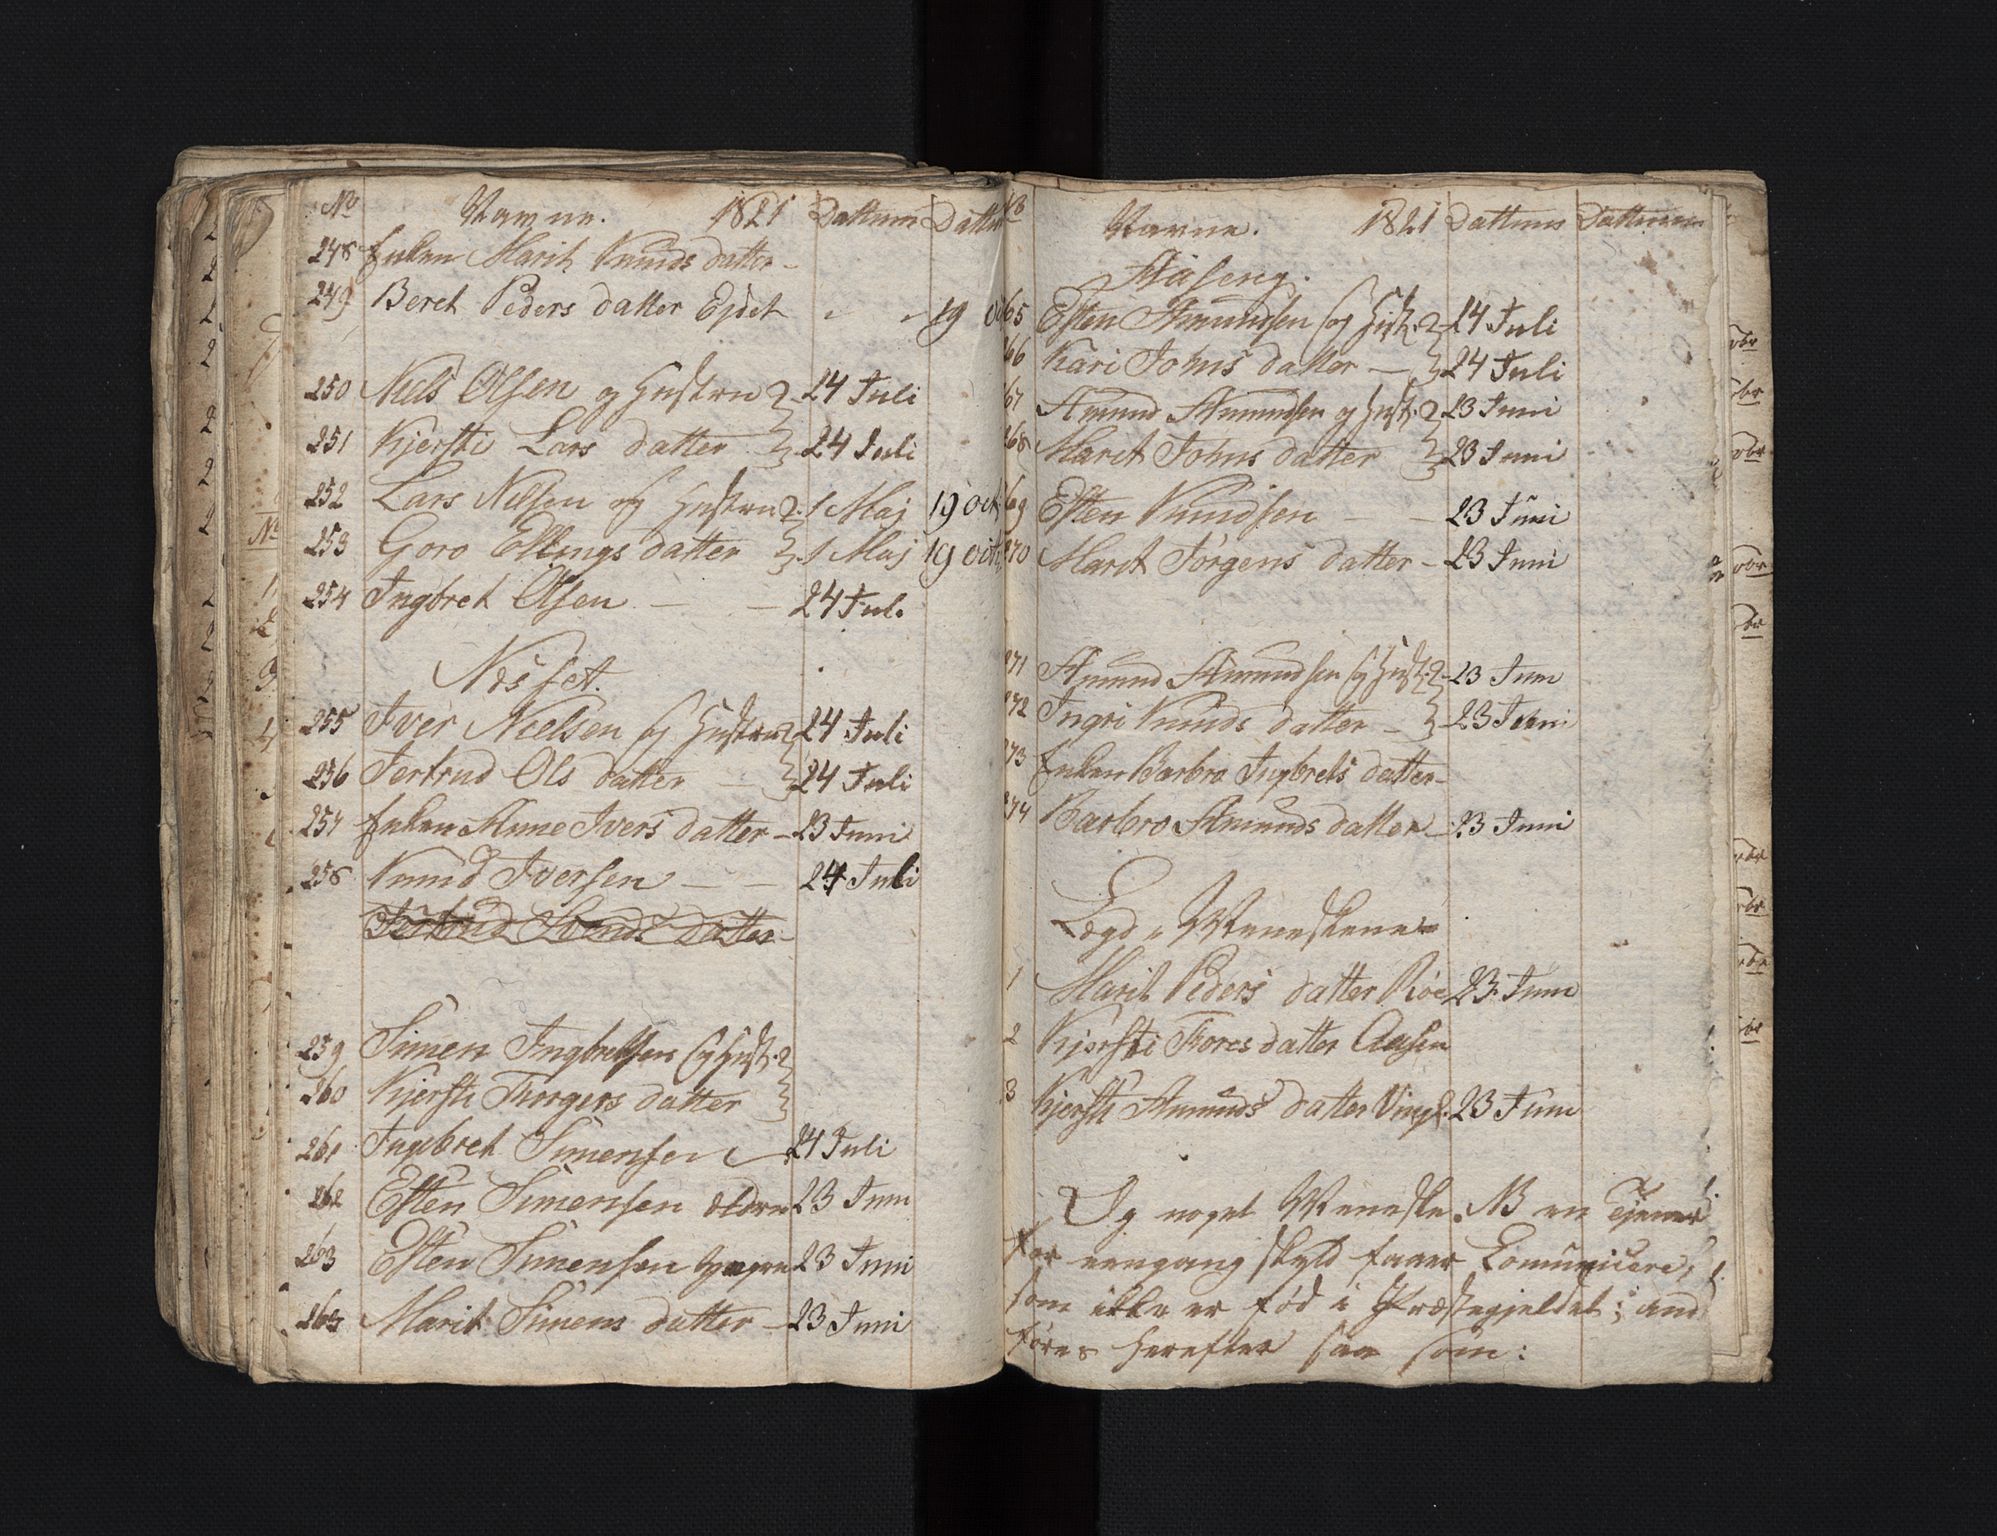 No Navne. 1821 Dattum Dattu
248 Enken Marit Knuds datter -
249 Beret Peders datter Ejdet 19 oc
250 Niels Olsen og Hustru 24 Juli
251 Kjersti Lars datter 24 Juli
252 Lars Nilsen og Hustru 1 Maj 19 oct
253 Goro Ellings datter 1 Maj 19 oct
254 Ingbret Olsen - - 24 Jul.
Nesset.
255 Iver Nielsen og Hustru 24 Juli
256 Jertrud Ols datter - 24 Juli
257 Enken Anne Ivers datter - 23 Juni
258 Knud Iversen - - 24 Juli
Jertrud datter -
259 Simen Ingbretsen og Hust.
260 Kjersti Torgers datter
261 Ingebret Simensen 24 Juli
262 Esten Simensen ældre 23 Juni
263 Esten Simensen yngre 23 Juni
263 Marit Simens datter - 23 Juni
Navne. 1821 Dattum Dattum
Aaseng.
65 Esten Amundsen og Hustr. 24 Juli
66 Kari Johns datter - 24 Juli
67 Amund Amundsen og Hust. 23 Juni
68 Maret Johns datter 23 Juni
69 Esten Knudsen - - 23 Juni
270 Marit Jørgens datter - 23 Juni
271 Amund Amundsen og Hust. 23 Juni
272 Ingri Knuds datter - 23 Juni
273 Enken Barbro Ingbrets datter -
274 Barbro Amunds datter - 23 Juni
Lægd, Meneskene
1 Marit Peders datter Röe 23 Juni
2 Kjersti Tores datter Aasen
3 Kjersti Amunds datter Vingl. 23 Juni
Og noget Meneske. NB en Tjener
for eengang skyld faaer Comunicere,
som ikke er fød i Præstegjeldet; and
føres herefter saa som: